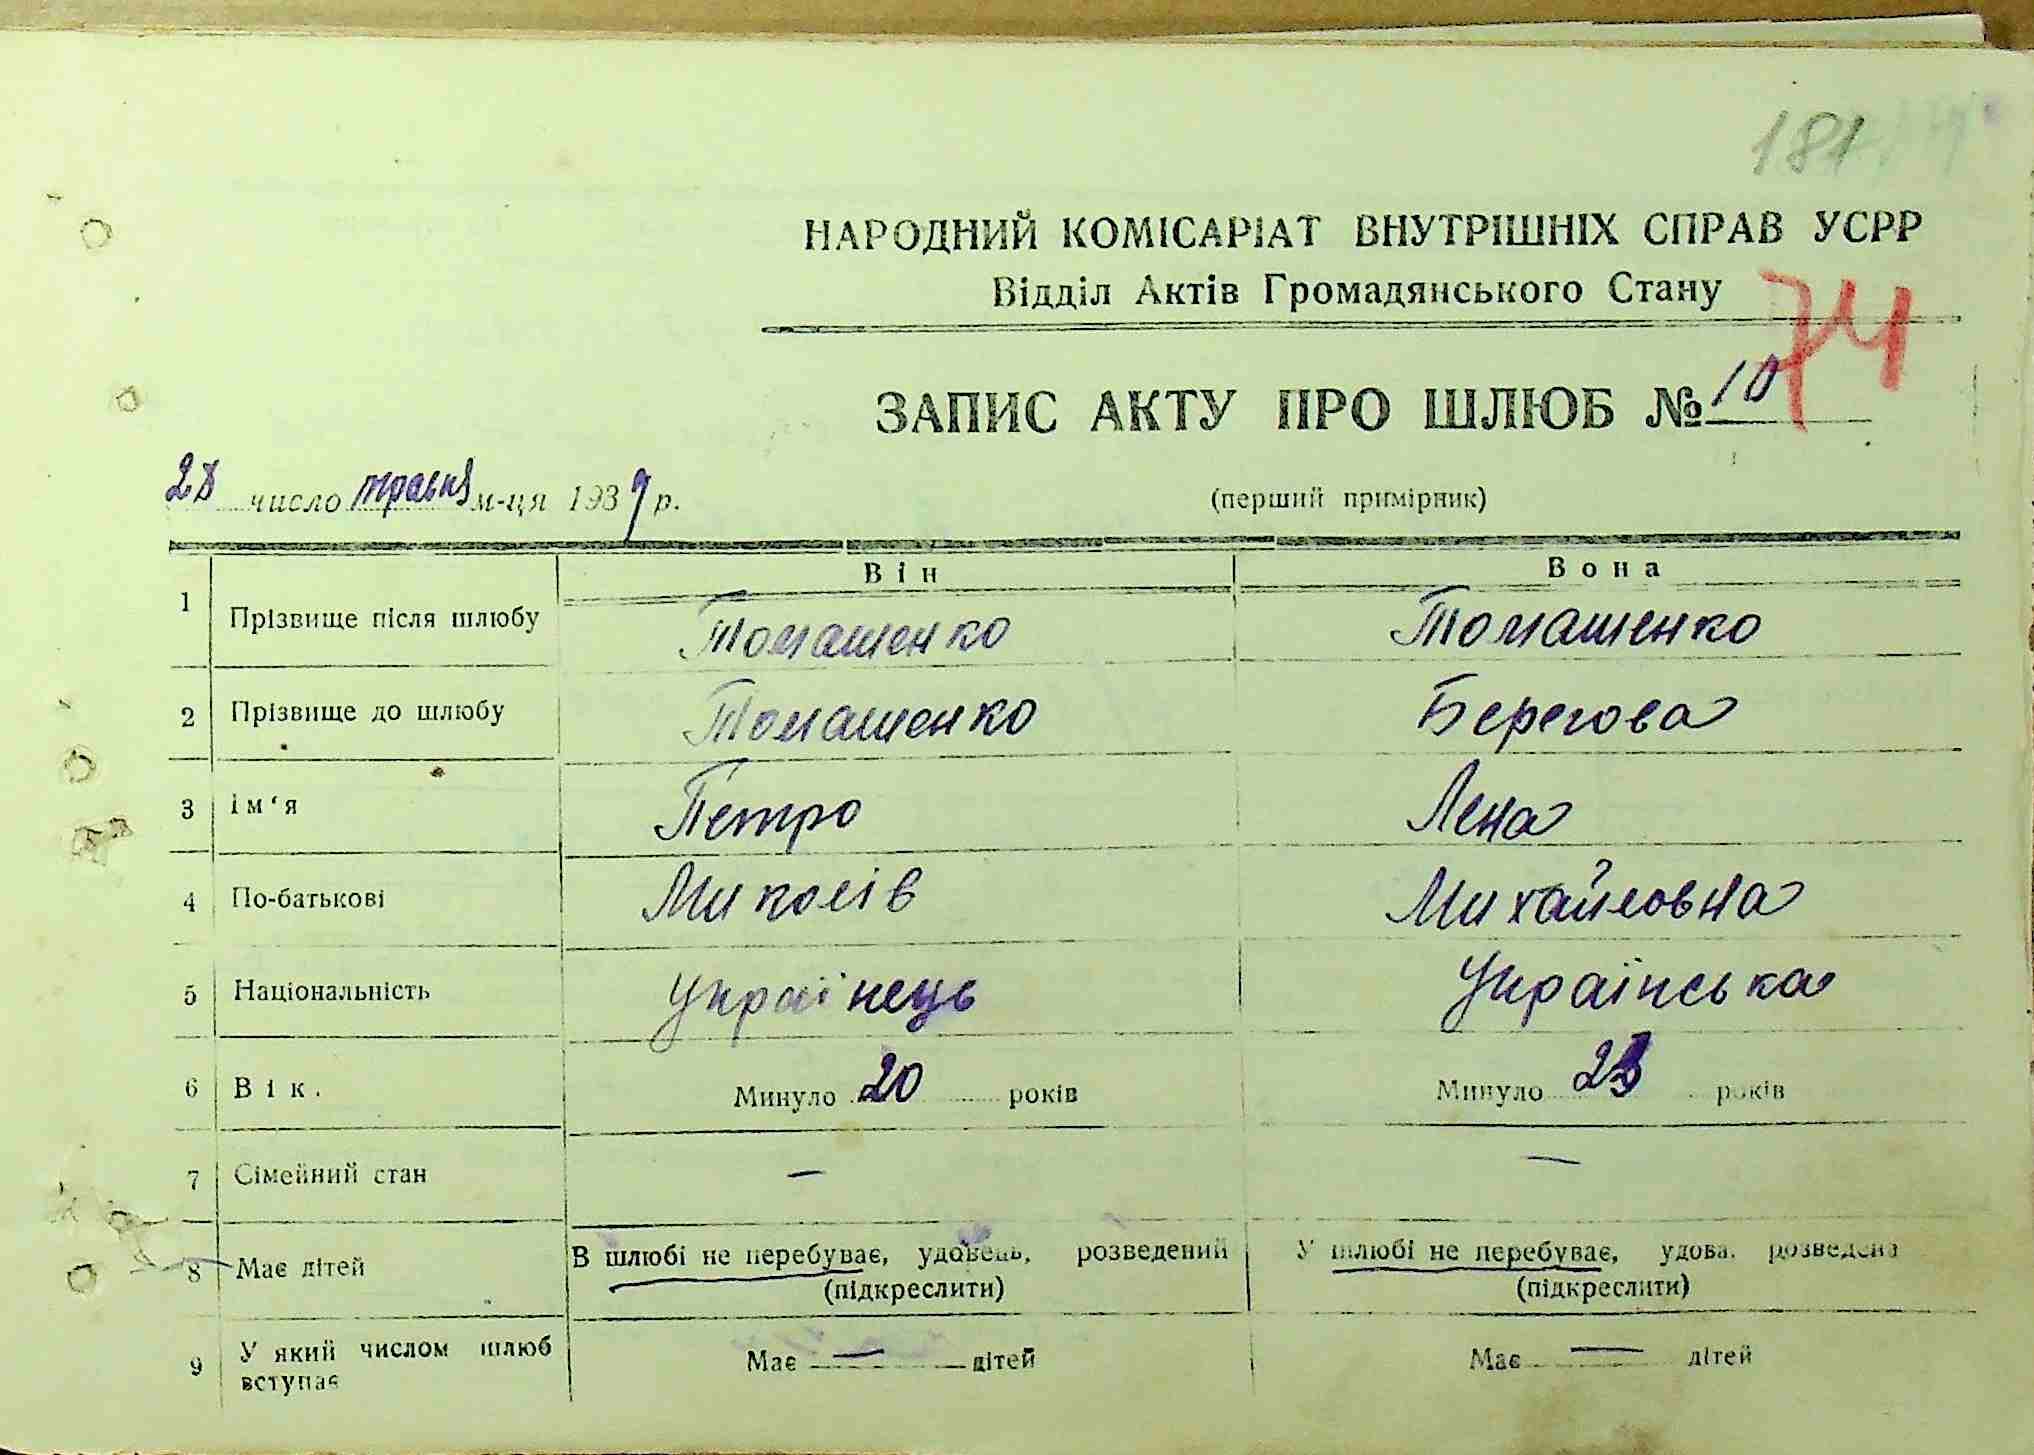 181
НАРОДНИЙ КОМІСАРІАТ ВНУТРІШНІХ СПРАВ УСРР
Відділ Актів Громадянського Стану
74
ЗАПИС АКТУ ПРО ШЛЮБ № 10
28 число травня м-ця 1939 р.
(перший примірник)
Він Вона
1 Прізвище після шлюбу Томашенко Томашенко
2 Прізвище до шлюбу Томашенко Берегова
3 Ім'я Петро Лена
4 По-батькові Миколів Михайловна
5 Національність Українець Українська
6 Вік. Минуло 20 років Минуло 23 років
7 Сімейний стан — —
8 Має дітей В шлюбі не перебуває, удовець, розведений У шлюбі не перебуває, удова, розведена
(підкреслити) (підкреслити)
9 У який числом шлюб вступає Має — дітей Має — дітей